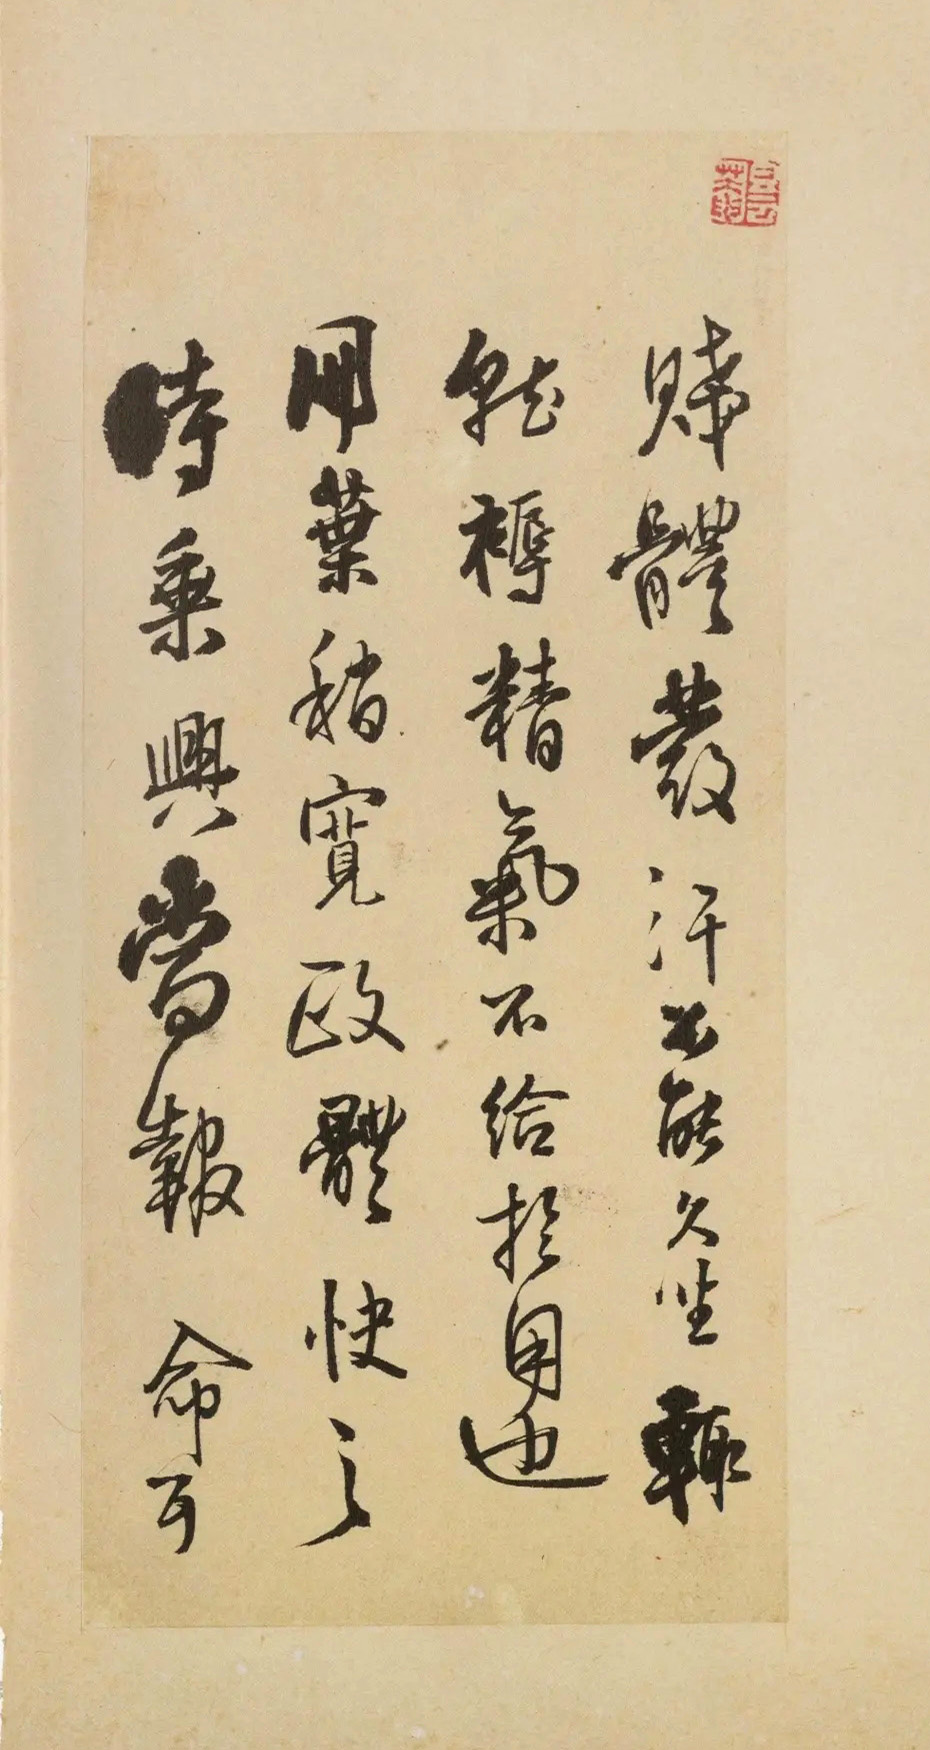 賤體發汗不能久坐輙
就褥精氣不給於用也
冊葉稍寬政體快之
時乘興當報命耳